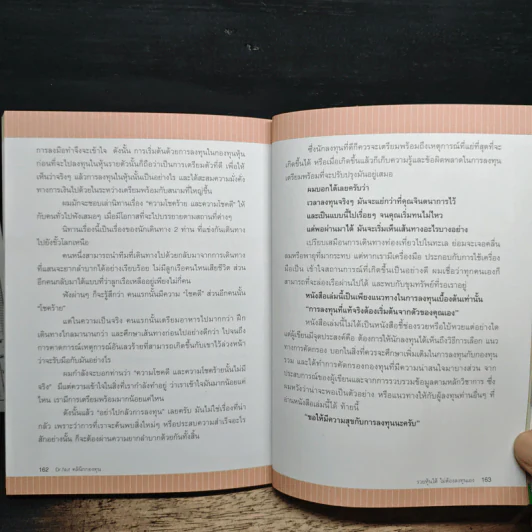 การลงมือทำจึงจะเข้าใจ ดังนั้น การเริ่มต้นด้วยการลงทุนในกองทุนหุ้น
ก่อนที่จะไปลงทุนในหุ้นรายตัวนั้นก็ถือว่าเป็นการเตรียมตัวที่ดี เพื่อให้
เห็นว่าจริงๆ แล้วการลงทุนในหุ้นนั้นเป็นอย่างไร และได้สะสมความมั่งคั่ง
ทางการเงินไปด้วยในระหว่างเตรียมพร้อมกับสนามที่ใหญ่ขึ้น
ผมมักจะชอบเล่านิทานเรื่อง "ความโชคร้าย และความโชคดี" ให้
กับคนทั่วไปฟังเสมอๆ เมื่อมีโอกาสที่จะไปบรรยายตามสถานที่ต่างๆ
นิทานเรื่องนี้เป็นเรื่องของนักเดินทาง 2 ท่าน ที่แข่งกันเดินทาง
ไปยังขั้วโลกเหนือ
คนหนึ่งสามารถนำทีมที่เดินทางไปด้วยกลับมาจากการเดินทาง
ที่แสนจะยากลำบากได้อย่างเรียบร้อย ไม่มีลูกเรือคนไหนเสียชีวิต ส่วน
อีกคนกลับมาได้แบบที่ว่าลูกเรือเหลืออยู่เพียงไม่กี่คน
ฟังผ่านๆ ก็จะรู้สึกว่า คนแรกนั้นมีความ "โชคดี" ส่วนอีกคนนั้น
"โชคร้าย"
แต่ในความเป็นจริง คนแรกนั้นเตรียมอาหารไปมากกว่า ฝึก
เดินทางไกลมานานกว่า และศึกษาเส้นทางก่อนไปอย่างดีกว่า ไปจนถึง
การคาดการณ์เหตุการณ์อันเลวร้ายที่สามารถเกิดขึ้นกับเขาไว้ล่วงหน้า
ว่าจะรับมือกับมันอย่างไร
ผมกำลังจะบอกท่านว่า "ความโชคดี และความโชคร้ายนั้นไม่มี
จริง" มีแต่ความเข้าใจในสิ่งที่เรากำลังทำอยู่ ว่าเราเข้าใจมันมากน้อยแค่
ไหน เรามีการเตรียมพร้อมมากน้อยแค่ไหน
ดังนั้นแล้ว "อย่าไปกลัวการลงทุน" เลยครับ มันไม่ใช่เรื่องที่น่า
กลัว เพราะว่าการที่เราจะค้นพบสิ่งใหม่ๆ หรือประสบความสำเร็จอะไร
สักอย่างนั้น ก็จะต้องผ่านความยากลำบากด้วยกันทั้งสิ้น
162
ซึ่งนักลงทุนที่ดีก็ควรจะเตรียมพร้อมถึงเหตุการณ์ที่แย่ที่สุดที่จะ
เกิดขึ้นได้ หรือเมื่อเกิดขึ้นแล้วก็เก็บความรู้และข้อผิดพลาดในการลงทุน
เตรียมพร้อมที่จะปรับปรุงมันอยู่เสมอ
ผมบอกได้เลยครับว่า
เวลาลงทุนจริงๆ มันจะแย่กว่าที่คุณจินตนาการไว้
และเป็นแบบนี้ไปเรื่อยๆ จนคุณเริ่มทนไม่ไหว
แต่พอผ่านมาได้ มันจะเริ่มเห็นเส้นทางอะไรบางอย่าง
เปรียบเสมือนการเดินทางท่องเที่ยวไปในทะเล ย่อมจะเจอคลื่น
ลมหรือพายุที่มากระทบ แต่หากเรามีเครื่องมือ ประกอบกับการใช้เครื่อง
มือเป็น เข้าใจสถานการณ์ที่เกิดขึ้นเป็นอย่างดี ผมเชื่อว่าทุกคนเองก็
สามารถที่จะล่องเรือผ่านไปได้ และพบกับขุมทรัพย์ที่รอเราอยู่
หนังสือเล่มนี้เป็นเพียงแนวทางในการลงทุนเบื้องต้นเท่านั้น
"การลงทุนที่แท้จริงต้องเริ่มต้นจากตัวของคุณเอง"
หนังสือเล่มนี้ไม่ได้เป็นหนังสือชี้ช่องรวยหรือโปรยหวยแต่อย่างใด
แต่ผู้เขียนมีจุดประสงค์คือ ต้องการให้นักลงทุนได้เห็นถึงวิธีการเลือก แนว
ทางการคัดกรอง บอกในสิ่งที่ควรจะศึกษาเพิ่มเติมในการลงทุนกับกองทุน
รวม และได้ทำการคัดกรองกองทุนที่มีความน่าสนใจมาบางส่วน จาก
ประสบการณ์ของผู้เขียนและจากการรวบรวมข้อมูลตามหลักวิชาการ ซึ่ง
ผมหวังว่าน่าจะพอเป็นตัวอย่าง หรือแนวทางให้กับผู้ลงทุนท่านอื่นๆ ที่
อ่านหนังสือเล่มนี้ได้ ท้ายนี้
"ขอให้มีความสุขกับการลงทุนนะครับ"
163